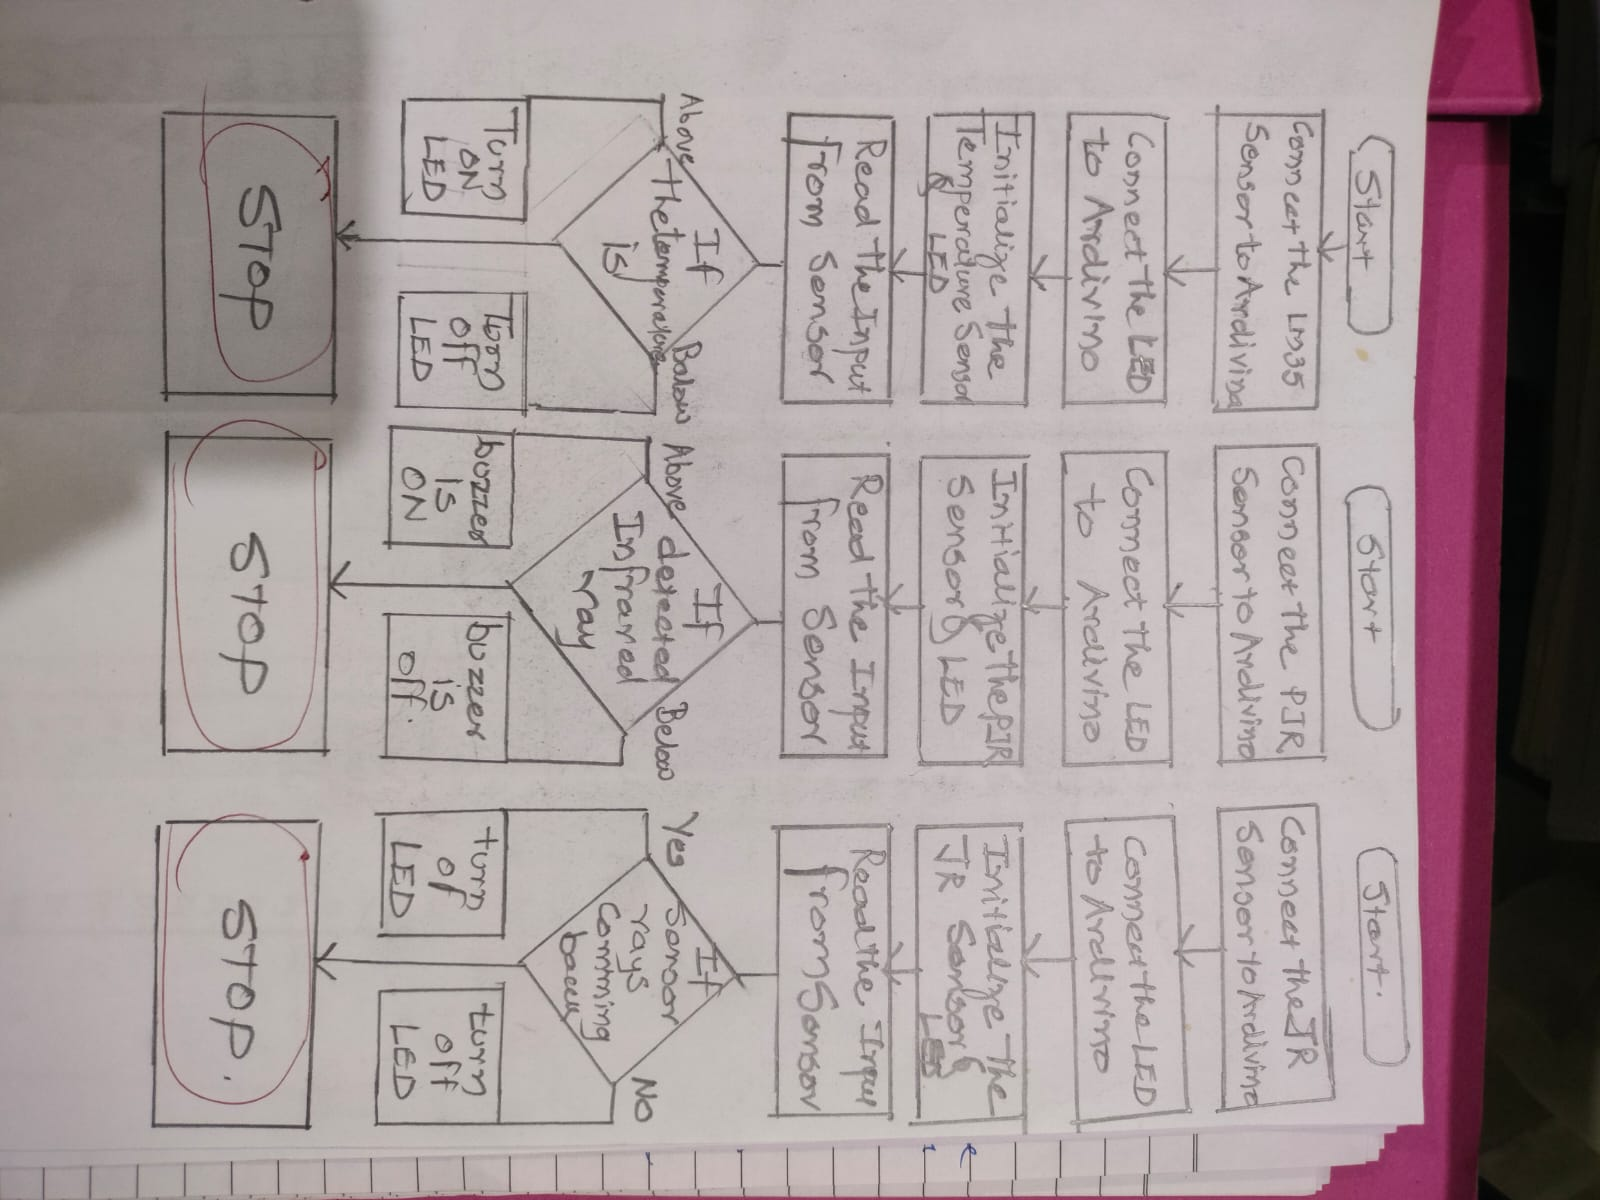 Start
Connect the LM35
Sensor to Ardivino
Connect the LED
to Ardivino
Initialize the
Temperature Sensor
& LED
Read the Input
from Sensor
If
the temperature
is
Above
Below
Turn
ON
LED
Turn
off
LED
STOP
Start
Connect the PIR
Sensor to Ardivino
Connect the LED
to Ardivino
Initialize the PIR
Sensor & LED
Read the Input
from Sensor
If
detected
Infrared
ray
Above
Below
buzzer
is
ON
buzzer
is
off.
STOP
Start.
Connect the IR
Sensor to Ardivino
Connect the LED
to Ardivino
Initialize the
IR Sensor &
LED
Read the Input
from Sensor
If
Sensor
rays
Comming
back
Yes
NO
turn
of
LED
turn
off
LED
STOP.